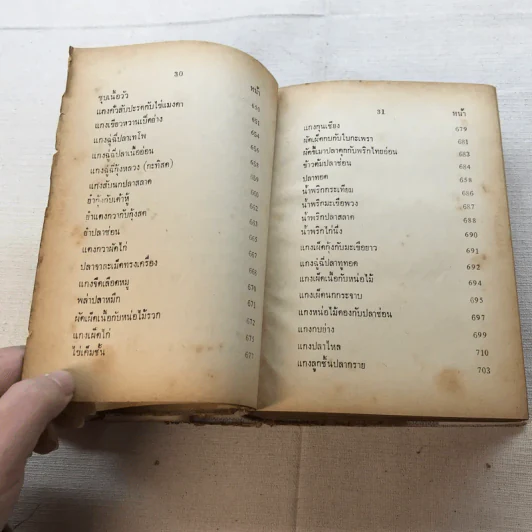 30
หน้า
ซุบเนื้อวัว
แกงคั่วสับปะรดกับไข่แมงดา 650
แกงเขียวหวานเป็ดย่าง 651
แกงฉู่ฉี่ปลาเทโพ 654
แกงฉู่ฉี่ปลาเนื้ออ่อน
แกงฉู่ฉี่กุ้งหลวง (กะทิสด)
แกงส้มนกปลาสลาด
ยำกุ้งกับ
ยำแตงกวากับกุ้งสด
ยำปลาช่อน
แตงกวาผัดไก่
ปลาจาละเม็ดทรงเครื่อง
แกงจืดเลือดหมู
พล่าปลาหมึก 671
ผัดเผ็ดเนื้อกับหน่อไม้รวก 672
แกงเผ็ดไก่
ไข่เค็มชั้น
31
หน้า
แกงกุนเชียง 679
ผัดเผ็ดกบกับใบกะเพรา 681
ผัดขี้เมาปลาดุกกับพริกไทยอ่อน 683
ข้าวต้มปลาช่อน 684
ปลาทอด
น้ำพริกกระเทียม 686
น้ำพริกมะเขือพวง 687
น้ำพริกปลาสลาด 688
น้ำพริกไก่นึ่ง 690
แกงเผ็ดกุ้งกับมะเขือยาว 691
แกงฉู่ฉี่ปลาทูทอด 692
แกงเผ็ดเนื้อกับหน่อไม้ 694
แกงเผ็ดนกกระจาบ 695
แกงหน่อไม้ดองกับปลาช่อน 697
แกงกบย่าง 699
แกงปลาไหล 710
แกงลูกชิ้นปลากราย 703